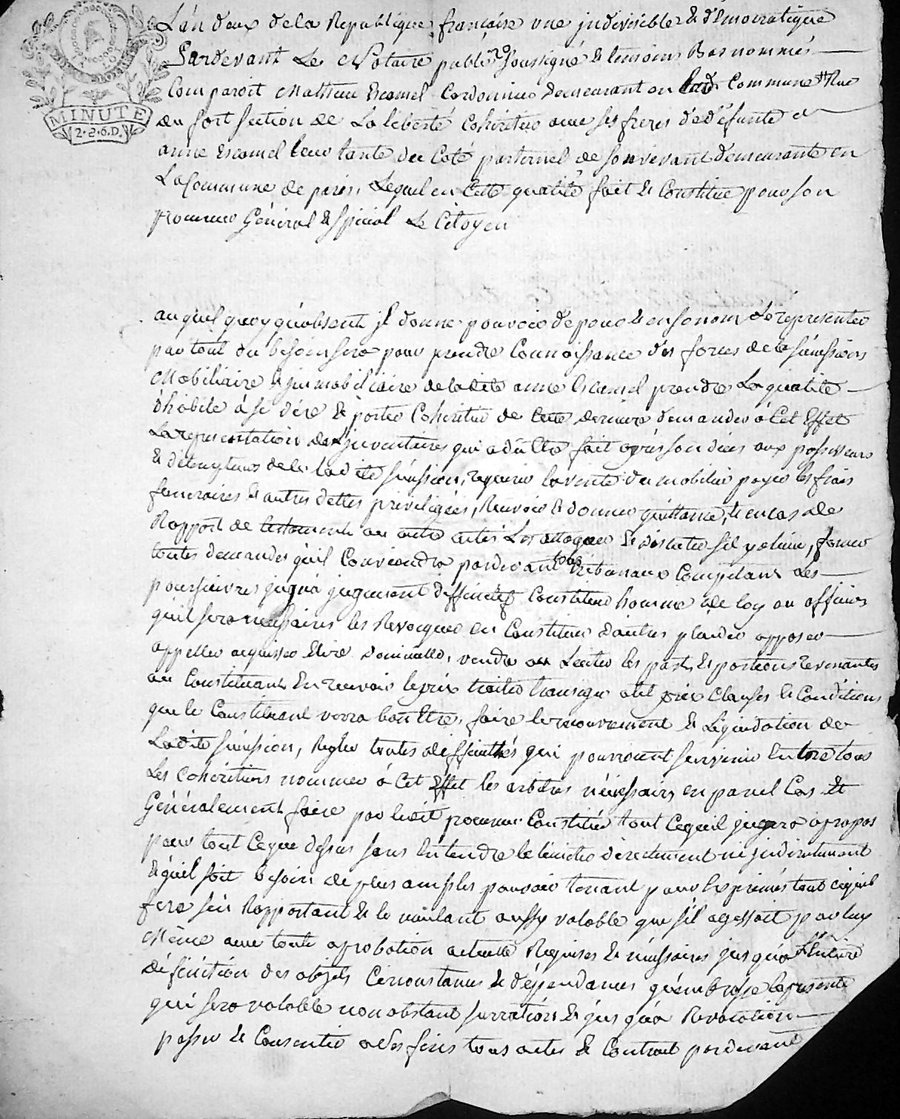 MINUTE
2.S.6.D.
L'an deux de la Republique francaise une indivisible & démocratique
Pardevant Le Notaire public soussigné & temoins Bas nommés
Comparoit Mathieu Escomel Cordonnier demeurant en lad. Commune Rue
du fort section de La liberté Coheritier avec ses freres de deffunte
anne Escomel leur tante du Coté paternel de son vivant demeurante en
La Commune de paris, Lequel en Cette qualité fait & Constitue pour son
procureur Général & special Le Citoyen
auquel quoy qu'absent il donne pouvoir de pour & en son nom Le representer
par tout ou besoin sera pour prendre Connoissance des forces de la sucession
Mobiliaire & immobiliaire de ladite anne Escomel prendre La qualité
d'habile à se dire & porter Coheritier de Cette derniere demander à Cet Effet
La representation de L'inventaire qui a dû Etre fait après son deces aux possesseurs
& detempteurs de la ladite sucession, requerir la vente du mobilier payer les frais
funeraires & autres dettes previlegiées, Recevoir & donner quittance, & en cas de
Rapport de testament ou autre actes Les attaquer & debattre s'il y a lieu, former
toutes demandes qu'il Conviendra pardevant tous tribunaux Competans Les
poursuivres jusqu'a jugement deffinitif Constituer homme de loy ou officiers
qu'il sera necessaires les Revoquer en Constituer d'autres plaider opposer
appeller acquiescer Elire domicille, vendre ou Liciter les parts & portions revenantes
au Constituant En recevoir le prix traiter transiger a tel prix Clauses & Conditions
que le Constituant verra bon Etre, faire le recouvrement & Liquidation de
Ladite sucession, Regler toutes difficultés qui pourroient survenir Entre tous
Les coheritiers nommer à Cet Effet les arbitres nécessaires en pareil Cas Et
Généralement faire par ledit procureur Constitué tout Ce qu'il jugera apropos
pour tout Ce que dessus sans Entendre le limiter directement ni indirectement
& qu'il soit besoin de plus amples pouvoir tenant pour Exprimés tout ce qu'il
fera sur Rapportant & le voulant aussy valable que s'il agissoit par luy
Même avec toute aprobation actuelle Requises & necessaires jusqu'a Entiere
definition des objets Circonstances & deppendances qu'embrasse la presente
qui sera valable nonobstant surrannation & jusqu'a Revocation
passer & Consentir a Ces fins tous actes & Contrat pardevant